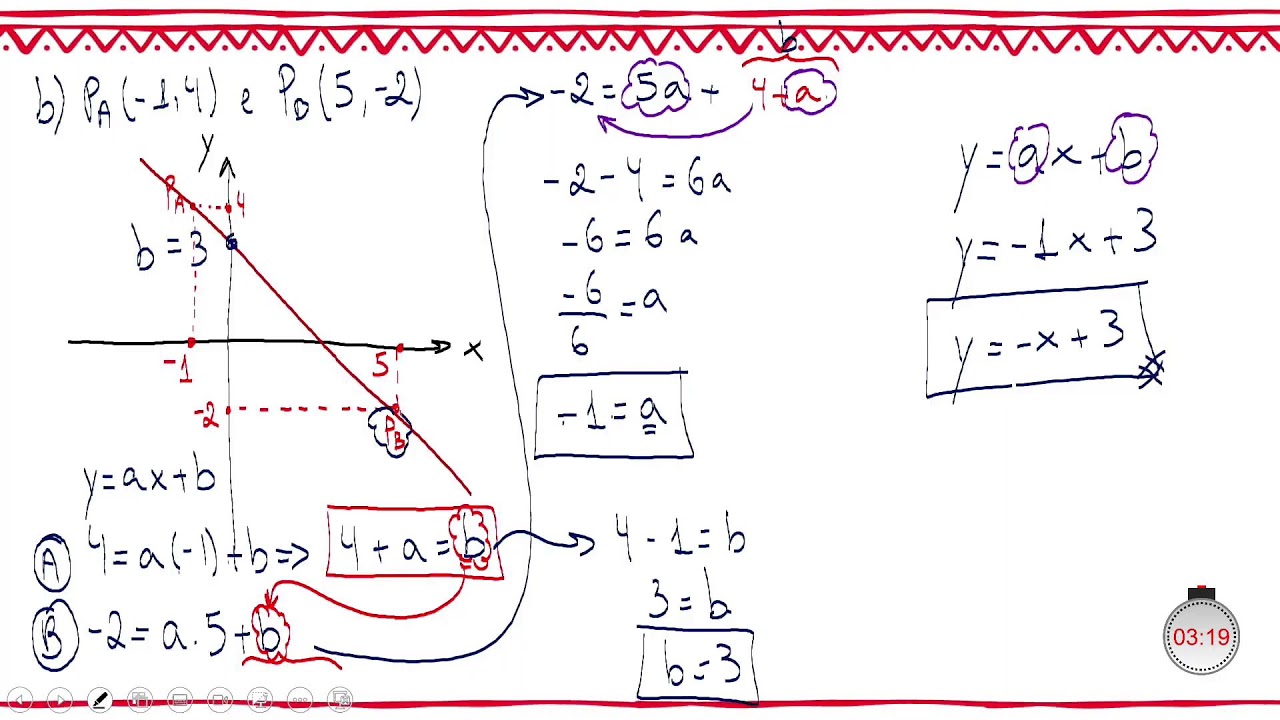 b) P_A(-1,4) e P_B(5,-2)
y
P_A
4
b = 3
-1
5
x
-2
P_B
y=ax+b
A 4=a(-1)+b=> 4+a=b
B -2=a.5+b
b
-2=5a+ 4+a
-2-4=6a
-6=6a
-6/6=a
-1=a
4-1=b
3=b
b=3
y=ax+b
y=-1x+3
y=-x+3
03:19